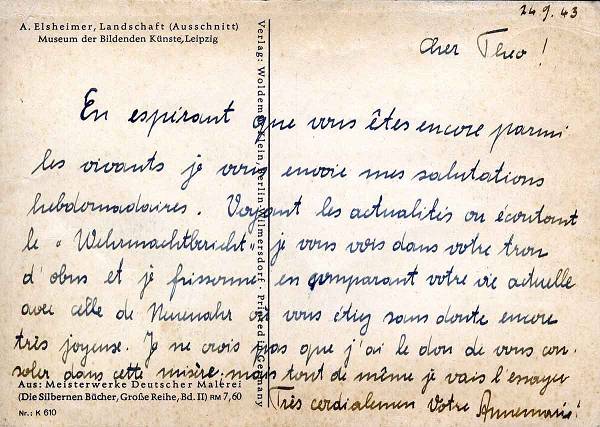 A. Elsheimer, Landschaft (Ausschnitt)
Museum der Bildenden Künste, Leipzig
24.9.43
Cher Theo !
En espirant que vous êtes encore parmi
les vivants je vous envoie mes salutations
hebdomadaires. Voyant les actualités ou écoutant
le "Wehrmachtbericht" je vous vois dans votre trou
d'obus et je frissonne en comparant votre vie actuelle
avec celle de Neuenahr où vous étiez sans doute encore
très joyeuse. Je ne crois pas que j'ai le don de vous con-
soler dans cette misère. mais tout de même je vais l'essayer
Très cordialemen Votre Annemarie!
Aus: Meisterwerke Deutscher Malerei
(Die Silbernen Bücher, Große Reihe, Bd. II) RM 7,60
Nr.: K 610
Verlag: Woldemar Klein, Berlin-Wilmersdorf · Printed in Germany